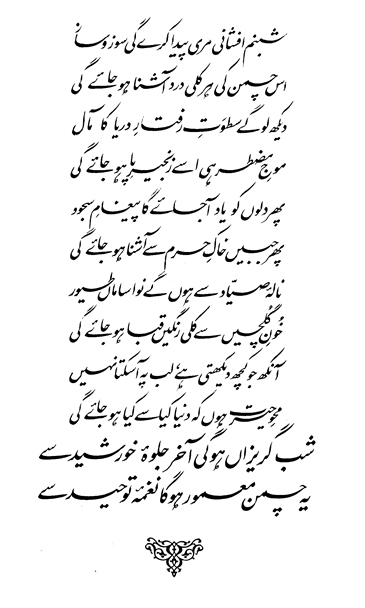 شبنم افشانی مری پیدا کرے گی سوز و ساز
اس چمن کی ہر کلی درد آشنا ہو جائے گی
دیکھ لو گے سطوتِ رفتارِ دریا کا مآل
موجِ مضطر ہی اسے زنجیرِ پا ہو جائے گی
پھر دلوں کو یاد آ جائے گا پیغامِ سجود
پھر جبیں خاکِ حرم سے آشنا ہو جائے گی
نالۂ صیّاد سے ہوں گے نوا ساماں طیور
خُونِ گُلچیں سے کلی رنگیں قبا ہو جائے گی
آنکھ جو کچھ دیکھتی ہے، لب پہ آ سکتا نہیں
محوِ حیرت ہوں کہ دنیا کیا سے کیا ہو جائے گی
شب گریزاں ہو گی آخر جلوۂ خورشید سے
یہ چمن معمور ہوگا نغمۂ توحید سے